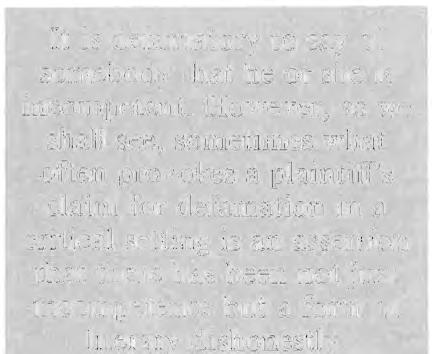 It is defamatory to say of
somebody that he or she is
incompetent. However, as we
shall see, sometimes what
often provokes a plaintiff's
claim for defamation in a
critical setting is an assertion
that there has been not just
incompetence but a form of
literary dishonestly